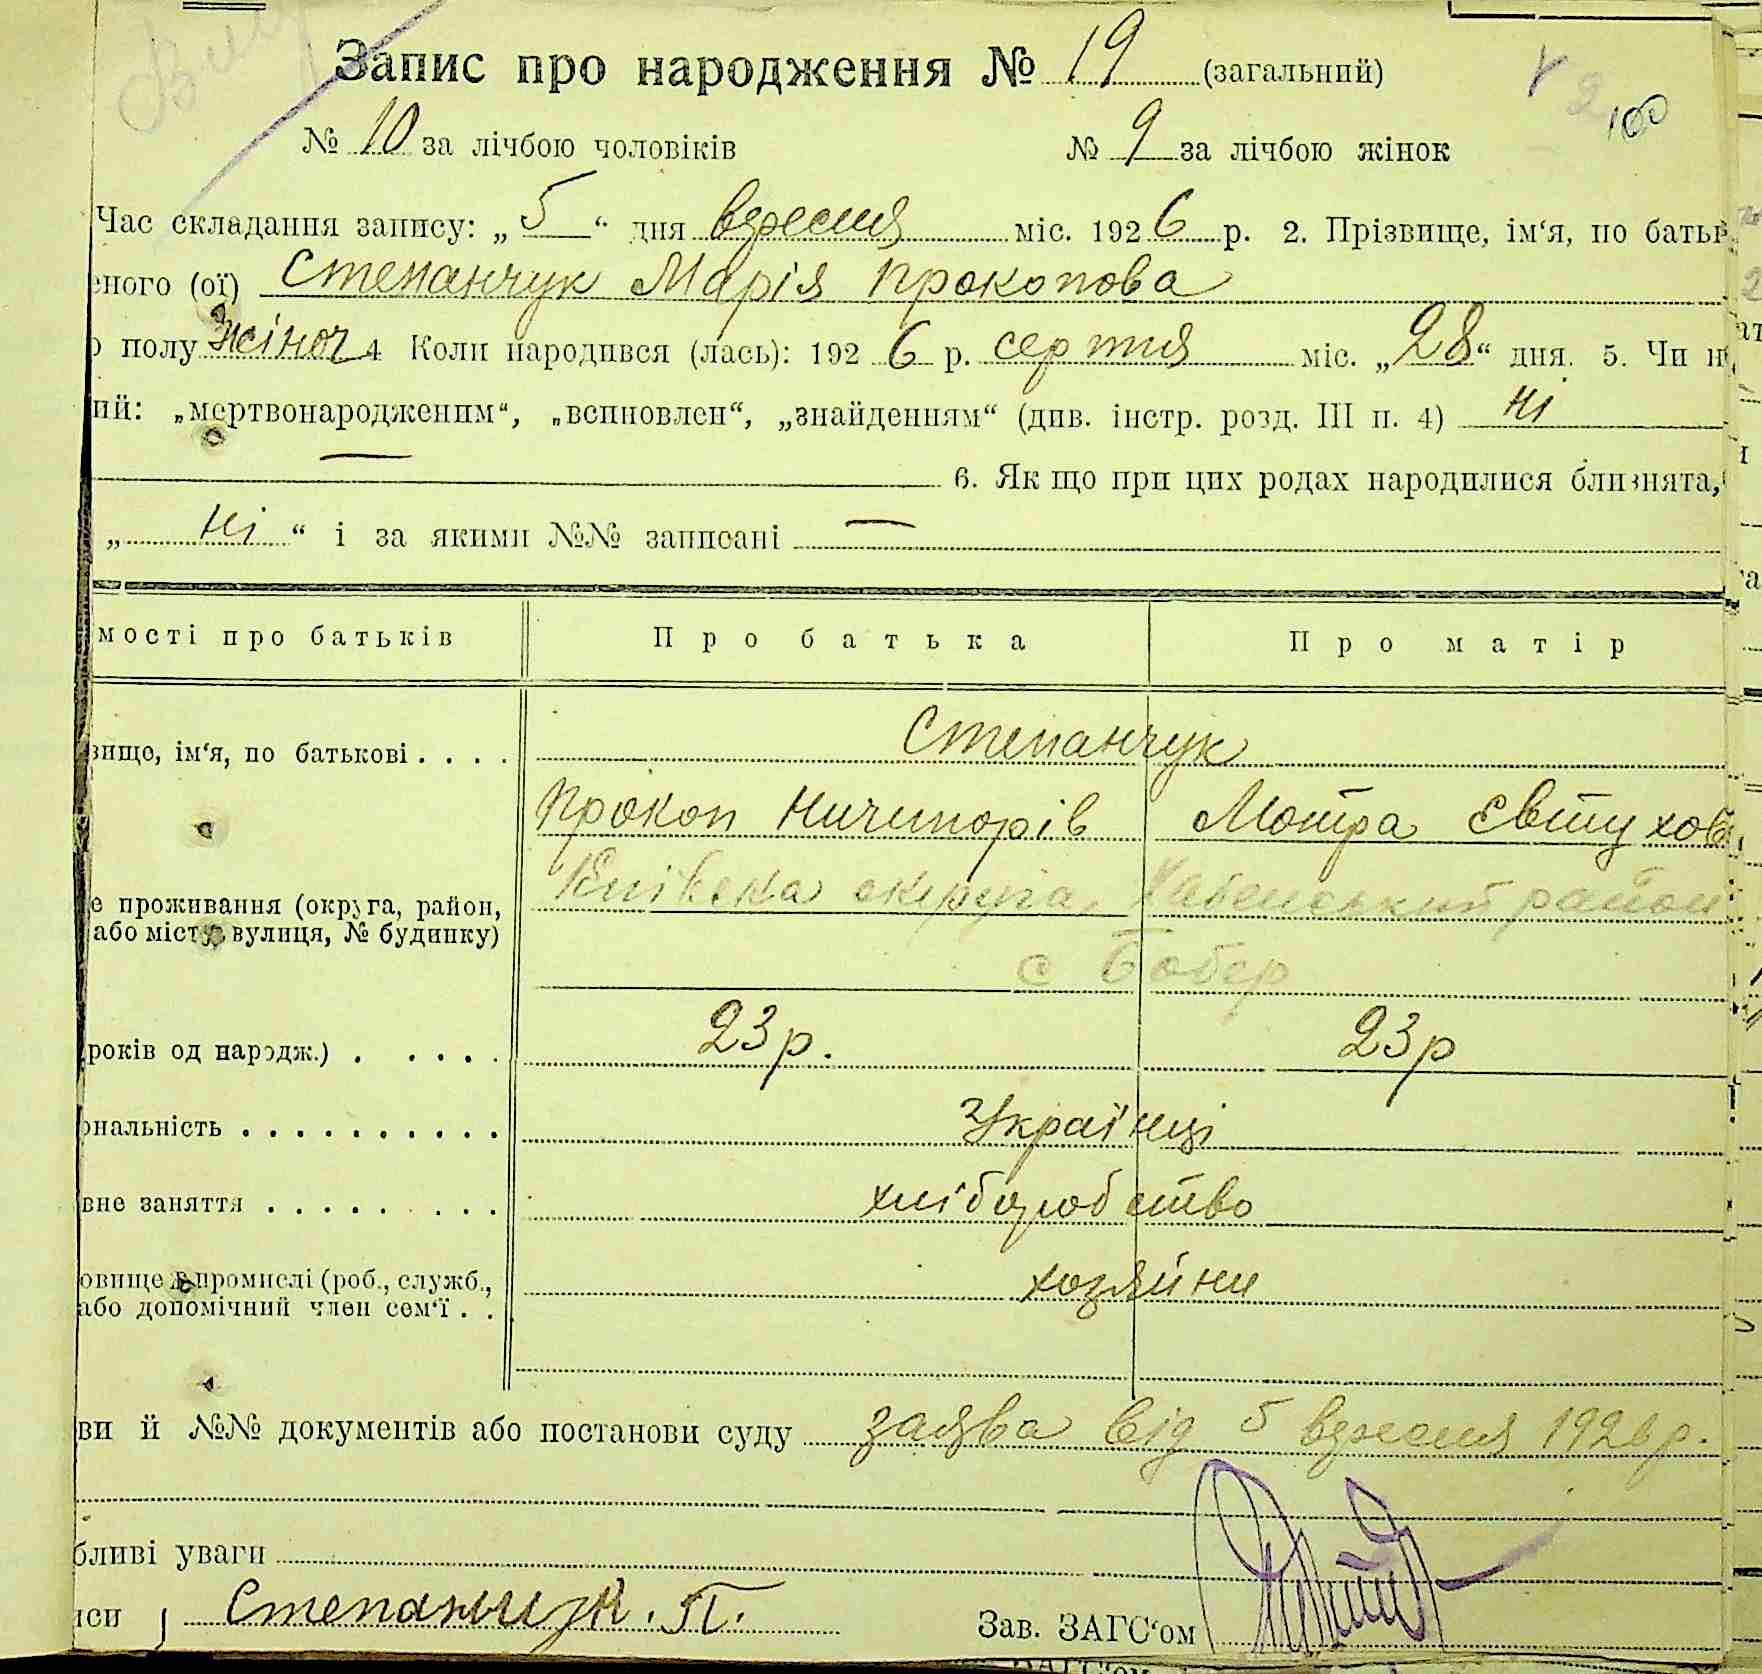 Запис про народження № 19 (загальний)
№ 10 за лічбою чоловіків № 9 за лічбою жінок
100
Час складання запису: „5“ дня вересня міс. 1926 р. 2. Прізвище, ім‘я, по батьк
еного (ої) Степанчук Марія Прокопова
о полу жіноч 4 Коли народився (лась): 1926 р. серпня міс. „28“ дня. 5. Чи н
ий: „мертвонародженим“, „вспновлен“, „знайденням“ (див. інстр. розд. III п. 4) ні
— 6. Як що при цих родах народилися близнята,
„ ні “ і за якими №№ записані —
мості про батьків Про батька Про матір
вище, ім‘я, по батькові . . . . Степанчук
Прокоп Ничипорів Мотра Євтухов
е проживання (округа, район, Київська округа, Хабенський район
або місто вулиця, № будинку)
с Бобер
років од народж.) . . . . . 23 р. 23 р
ональність . . . . . . . . . . Українці
вне заняття . . . . . . . . хліборобство
овище в промислі (роб., служб., хозяйни
або допомічний член сем‘ї . .
ви й №№ документів або постанови суду заява від 5 вересня 1926 р.
бливі уваги
иси Степанчук. П. Зав. ЗАГС‘ом